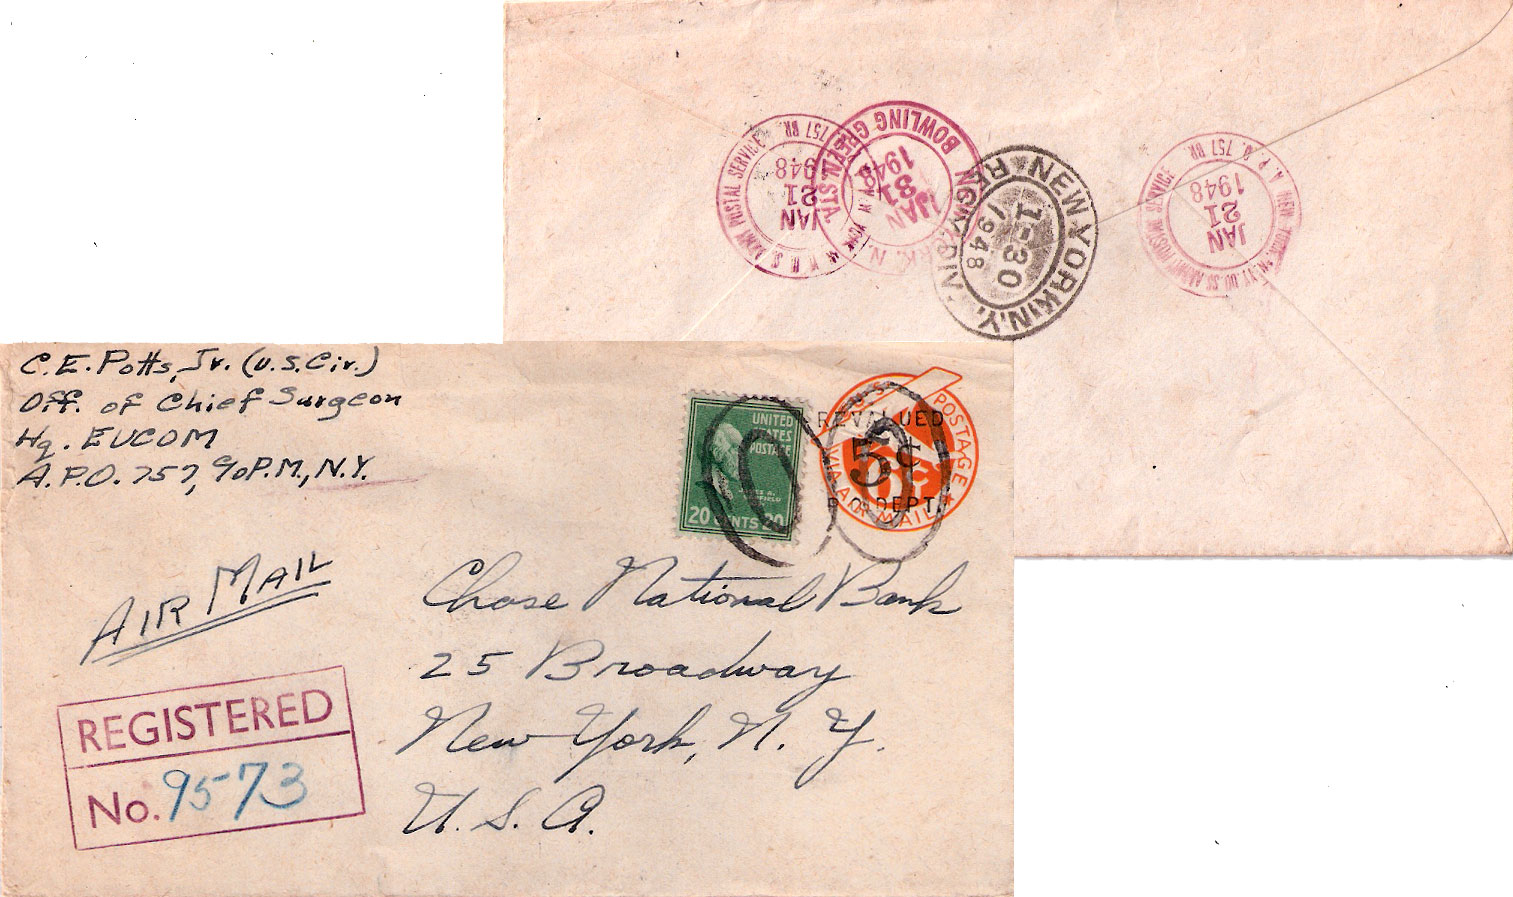 C. E. Potts, Jr. (U.S. Civ.)
Off. of Chief Surgeon
Hq. EUCOM
A.P.O. 757, % P.M., N.Y.
AIR MAIL
REGISTERED
No. 9573
UNITED
STATES
POSTAGE
JAMES A.
GARFIELD
20 CENTS 20
U.S. POSTAGE
VIA AIR MAIL
REVALUED
5¢
P.O. DEPT.
Chase National Bank
25 Broadway
New York, N. Y.
U. S. A.
U.S. ARMY POSTAL SERVICE
757 BR.
JAN
21
1948
BOWLING GREEN STA.
JAN
31
1948
NEW YORK, N.Y.
REG'Y DIV.
1-30
1948
NEW YORK, N.Y. U.S. ARMY POSTAL SERVICE
A.P.O. 757 BR.
JAN
21
1948